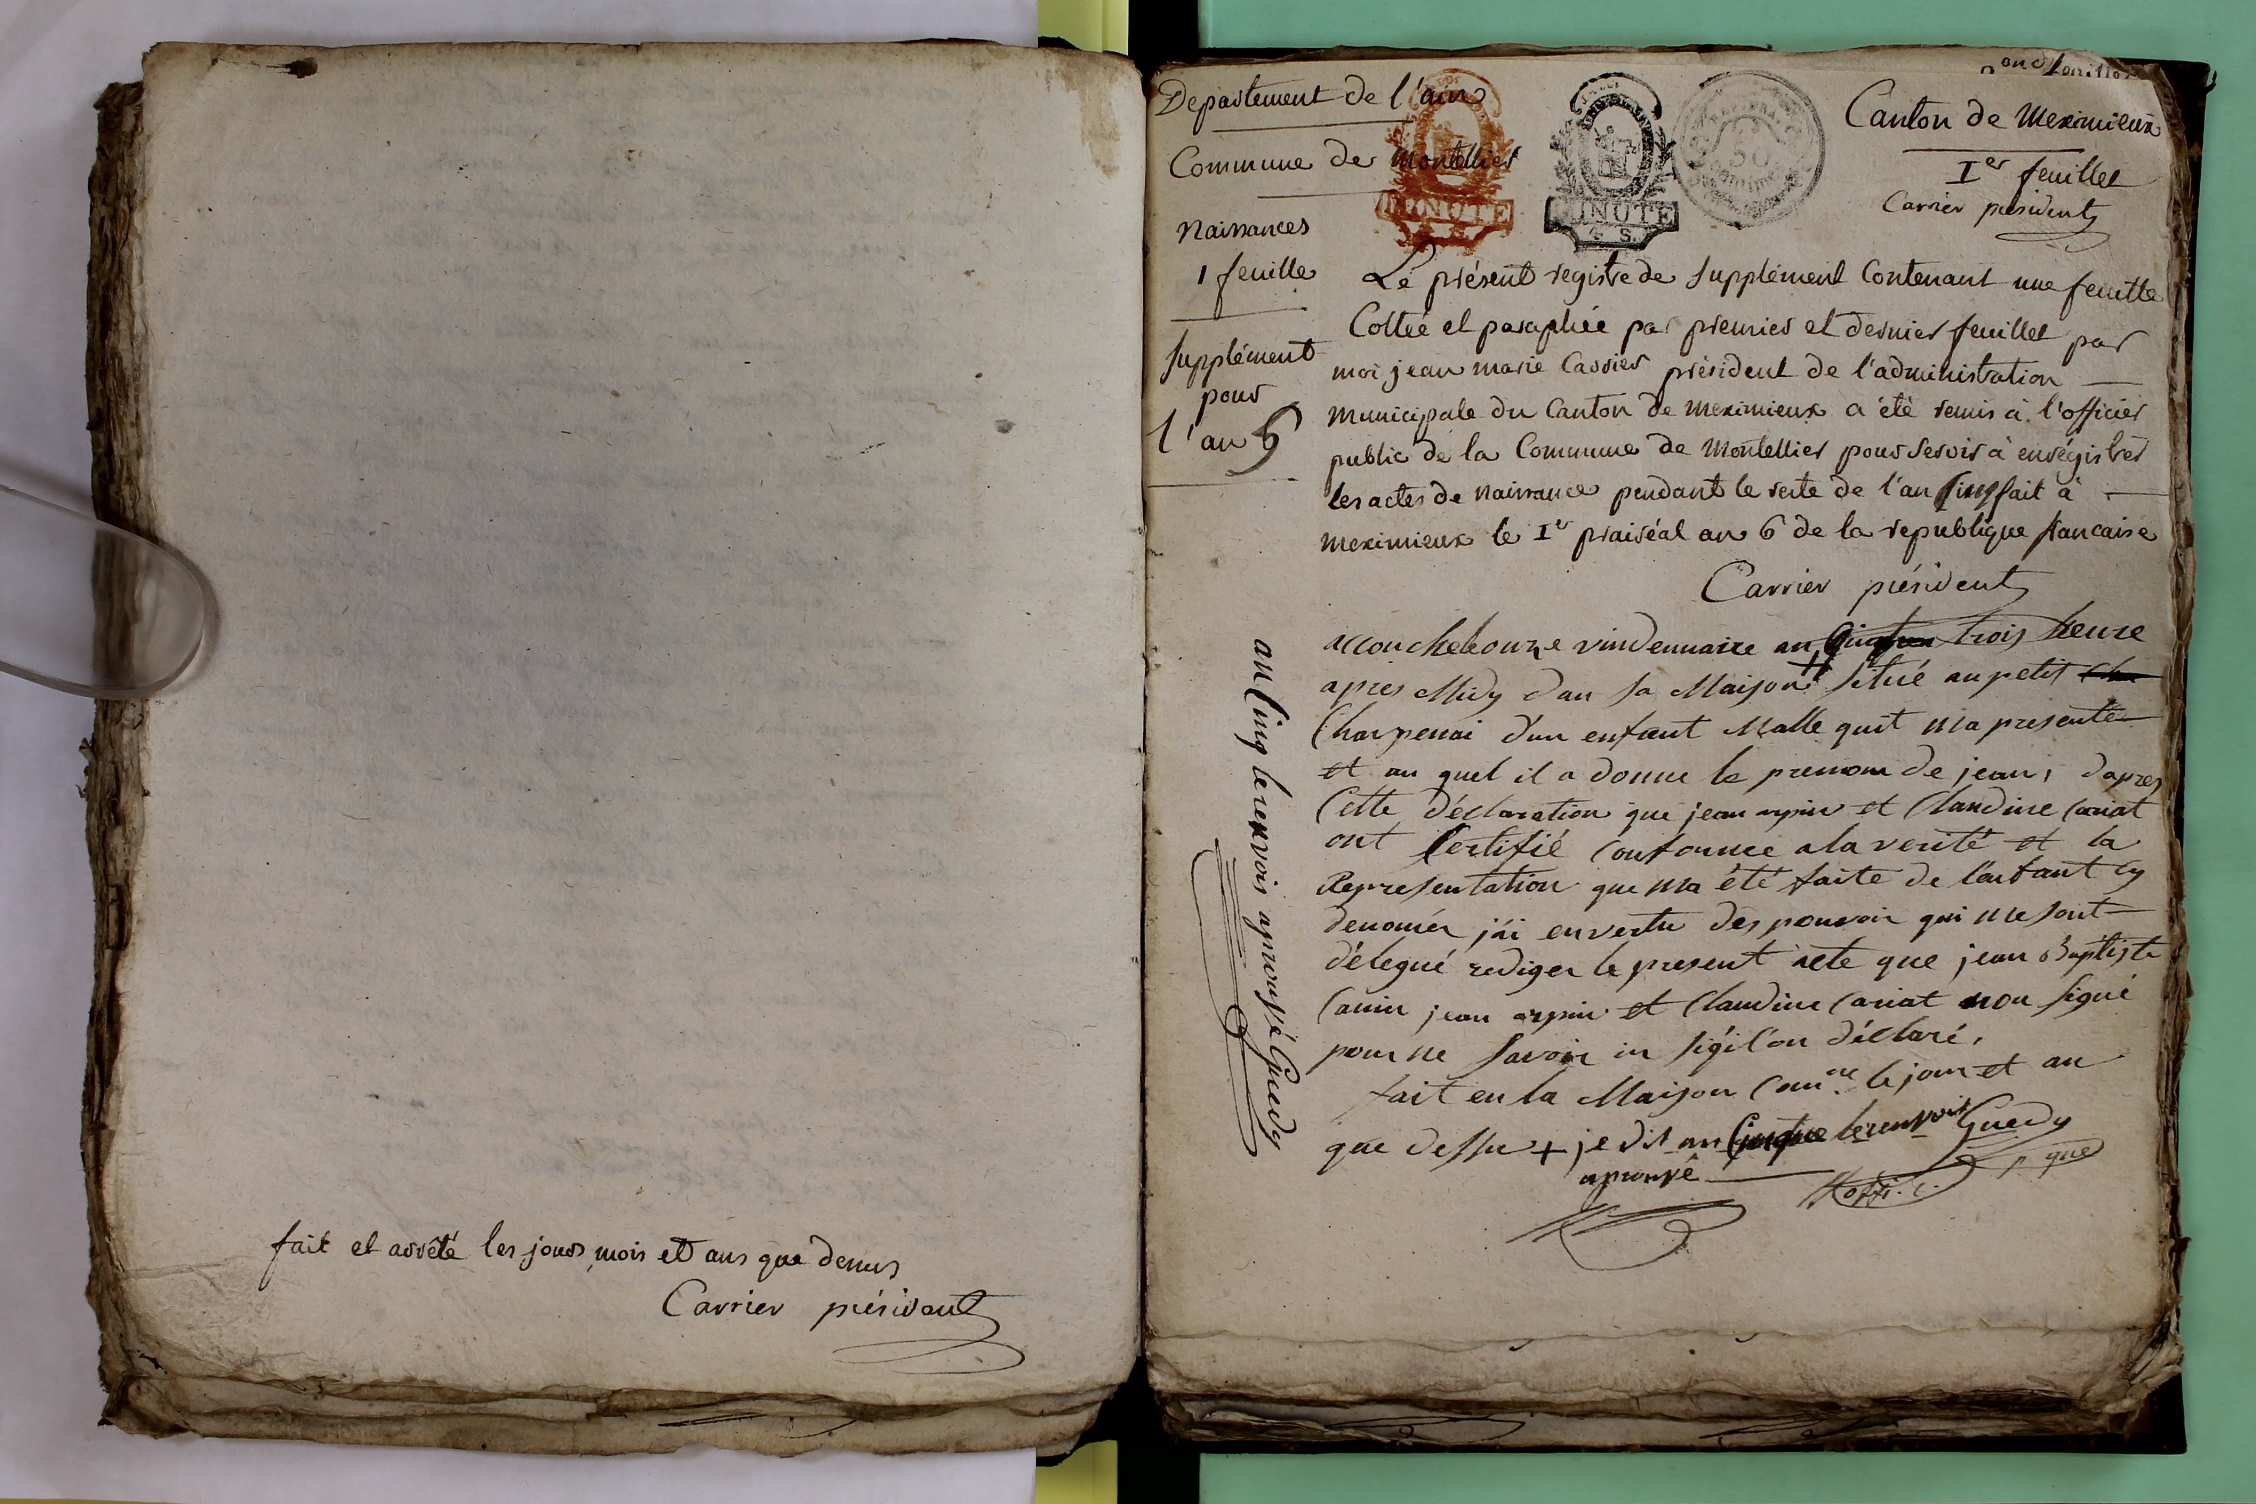 fait et arrêté les jours, mois et ans que dessus
Carrier président
Departement de l'ain
Commune de Montellier
Naissances
1 feuille
Supplément
pour
l'an 6
MINUTE
MINUTE
50
Canton de Meximieux
Ier feuillet
Carrier président
Le présent registre de supplément Contenant une feuille
Cottée et paraphée par premier et dernier feuillet par
moi jean marie Carrier président de l'administration
municipale du Canton de meximieux a été remis à l'officier
public de la Commune de Montellier pour servir à enrégistrer
les actes de naissance pendant le reste de l'an fait à
meximieux le Ier prairéal an 6 de la republique francaise
Carrier président
accouche le onze vindennaire an trois heure
apres Midy dan sa Maison situé au petit
Charpenai d'un enfant Malle quit ma presente
et au quel il a donne le prenom de jean, dapres
Cette déclaration que jean arpin et Claudine Cariat
ont Certifié Conforme a la verité et la
Representation que ma été faite de l'enfant cy
denomér j'ai en vertu des pouvoir qui me sont
délegué rediger le present acte que jean Baptiste
Canin jean arpin et Claudine Cariat non signé
pour ne savoir in sigé l'on déclaré,
fait en la Maison Comne le jour et an
que dessu + je dit an Cinque le renvoit Guedy
aprouvé offi. p. que
an Cinq le renvois aprouvé Guedy